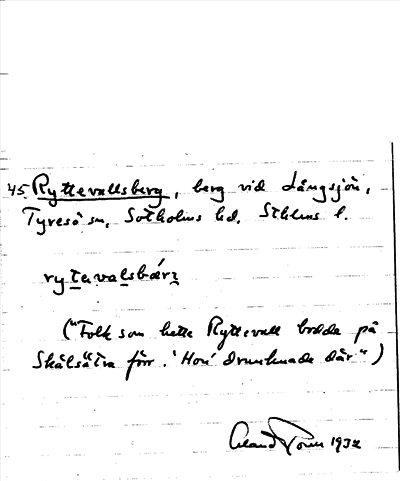 45. Ryttevallsberg, berg vid Långsjön,
Tyresö sn, Sotholms hd, Sthlms l.
rytavalsbärj
("Folk som hette Ryttevall bodde på
Skälsätra förr. 'Hon' drunknade där")
1932